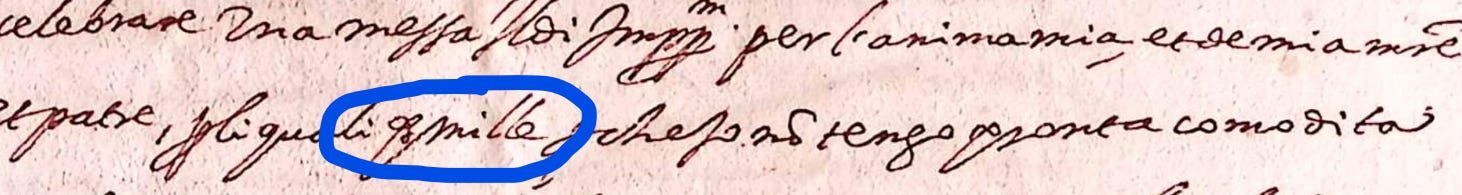 celebrare una messa il di Impp.m per l'anima mia, et de mia mrē
et patre, p li quali δ mille, p che Io nō tengo pronta comodità